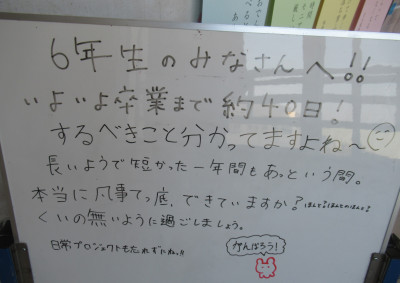 6年生のみなさんへ!!
いよいよ卒業まで約40日!
するべきこと分かってますよね〜
長いようで短かった一年間もあっという間。
本当に凡事てっ底、できていますか?ほんと?ほんとにほんと?
くいの無いように過ごしましょう。
日常プロジェクトも忘れずにねっ!!
がんばろう!